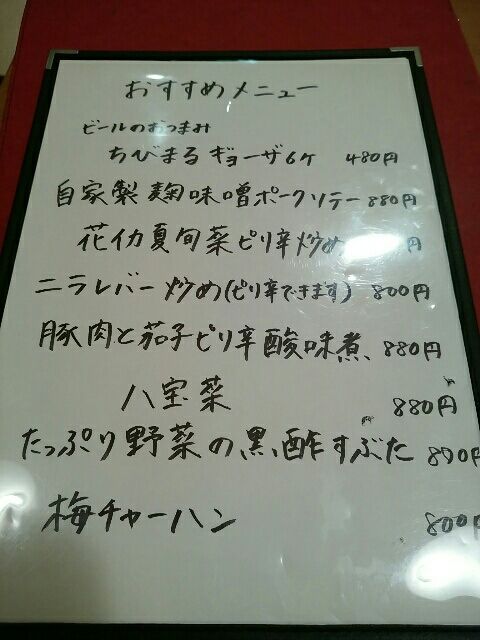 おすすめメニュー
ビールのおつまみ
ちびまるギョーザ6ケ 480円
自家製麹味噌ポークソテー 880円
花イカ夏旬菜ピリ辛炒め 円
ニラレバー炒め(ピリ辛できます) 800円
豚肉と茄子ピリ辛酸味煮 880円
八宝菜 880円
たっぷり野菜の黒酢すぶた 890円
梅チャーハン 800円